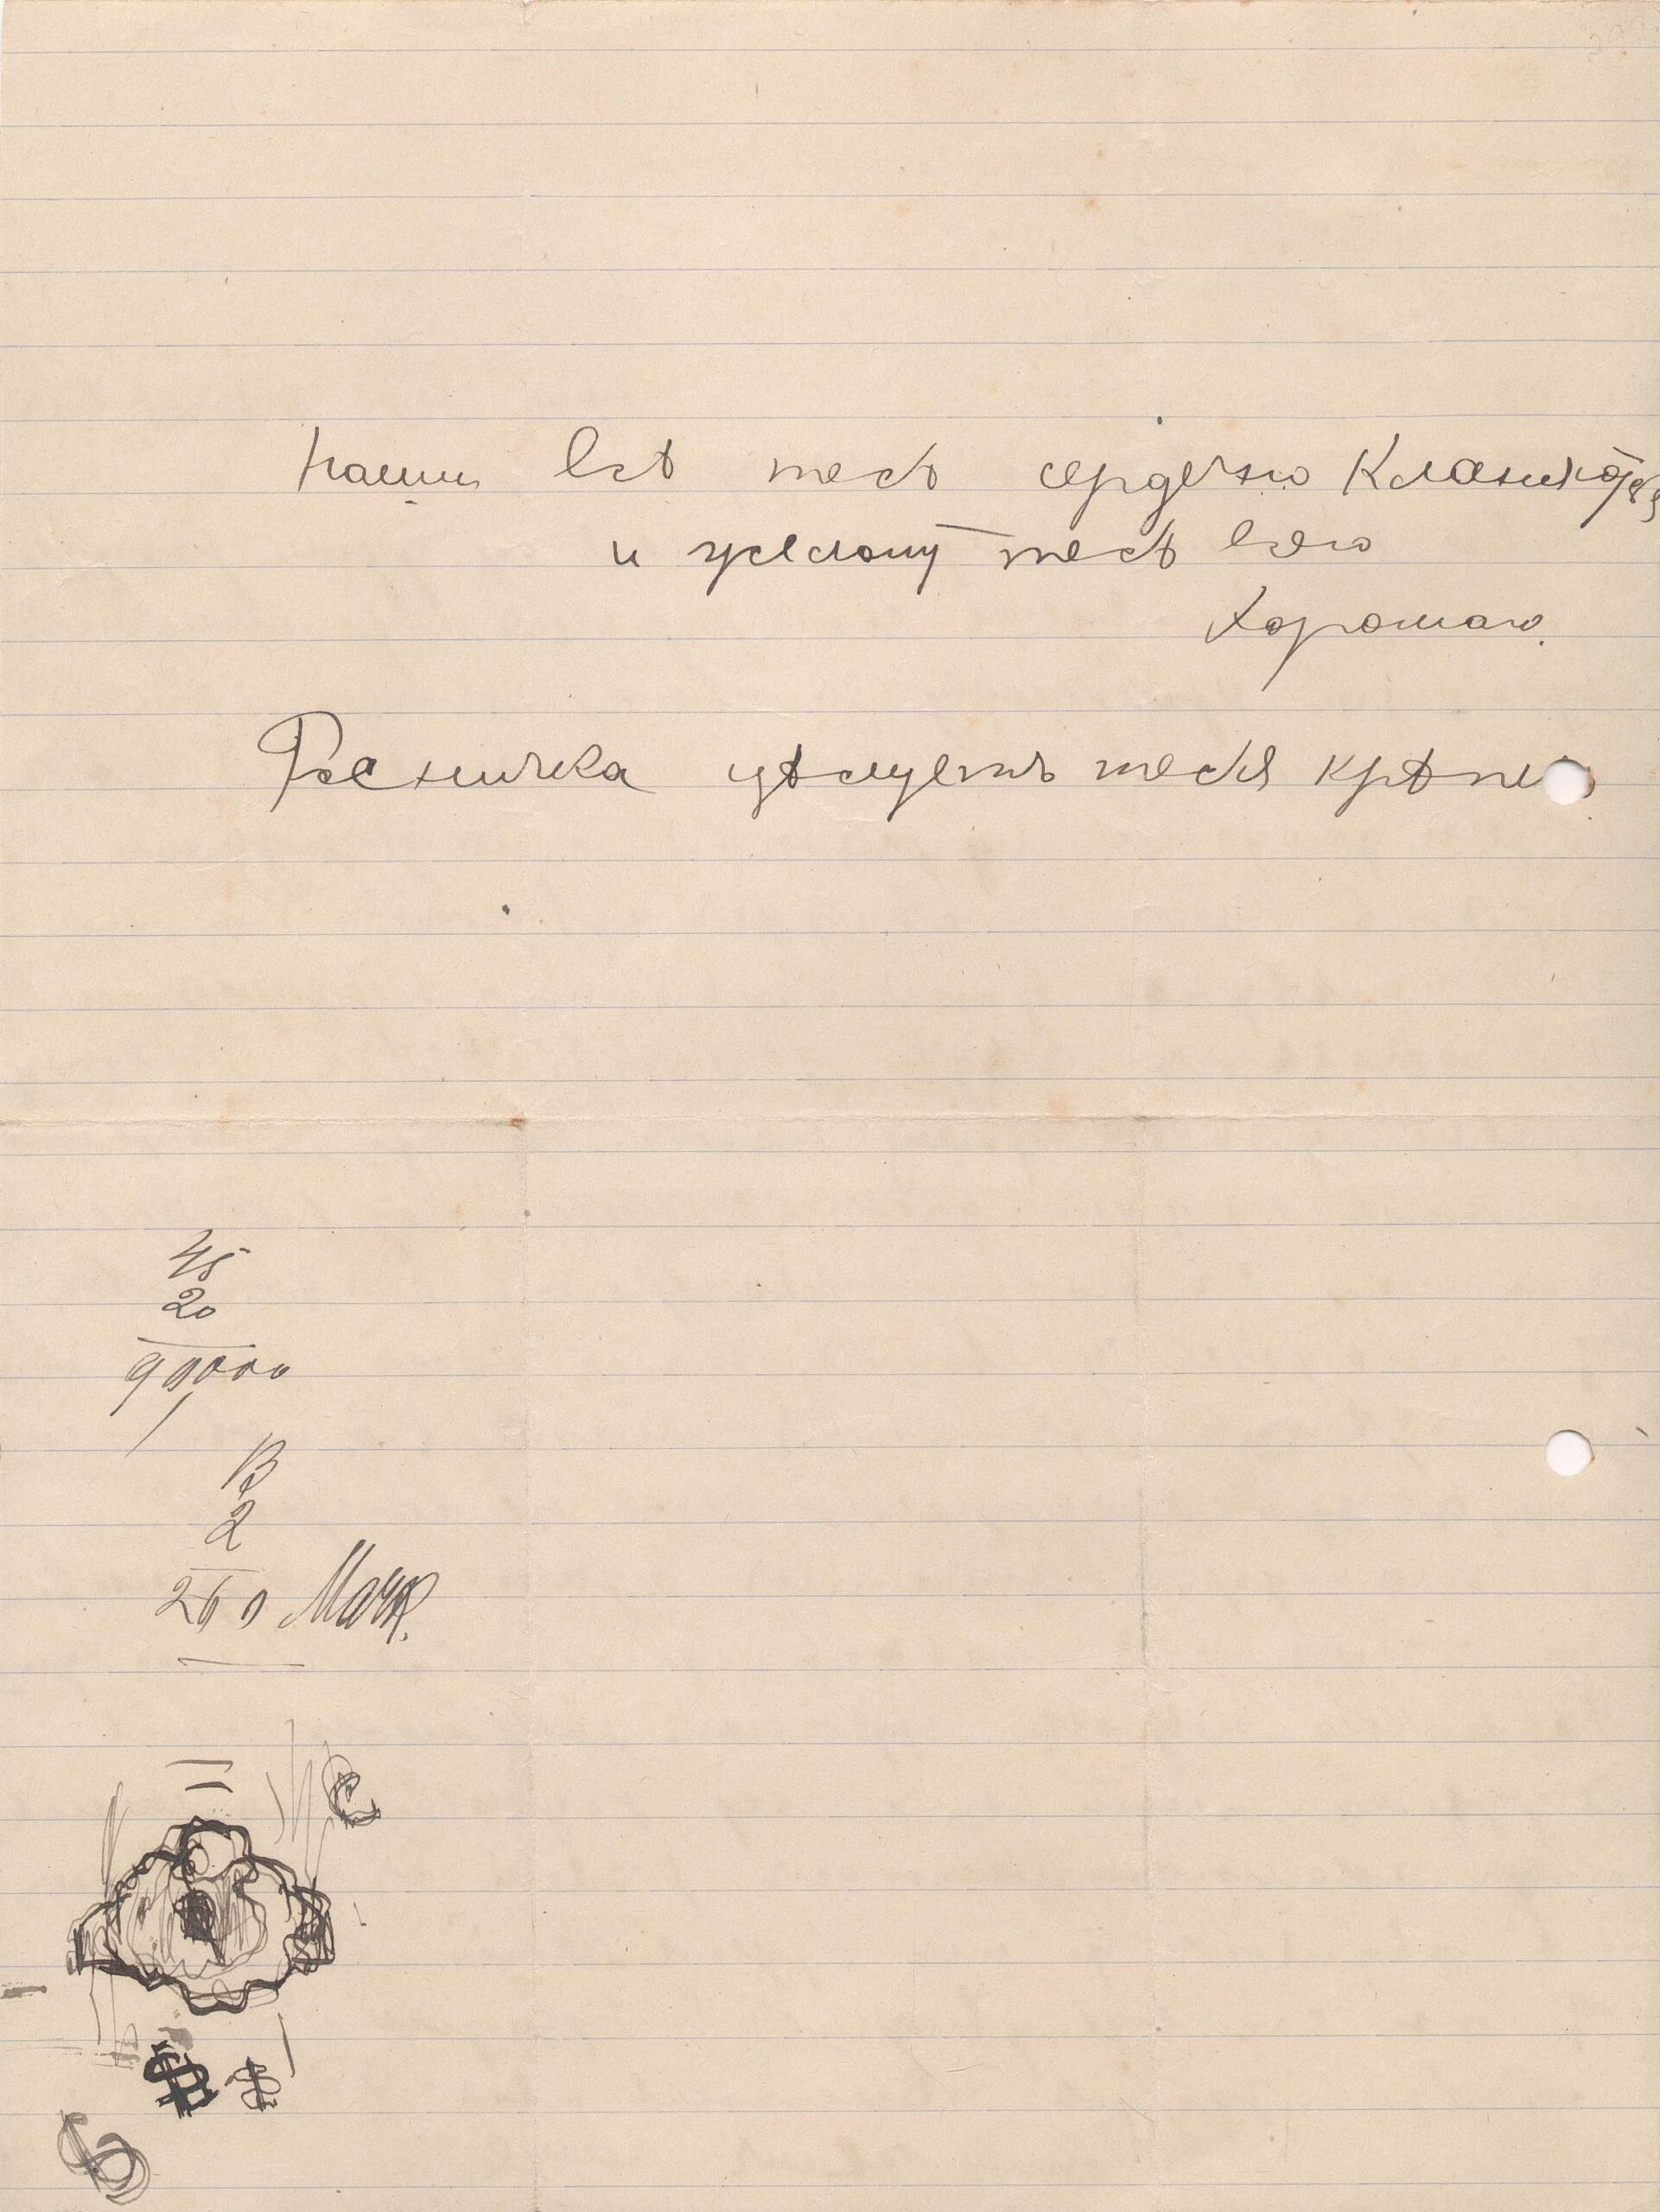 Наши всѣ тебѣ сердечно кланяются
и желают тебѣ всего
хорошаго.
цѣлуетъ тебя крѣпко
45
20
90000
13
2
260